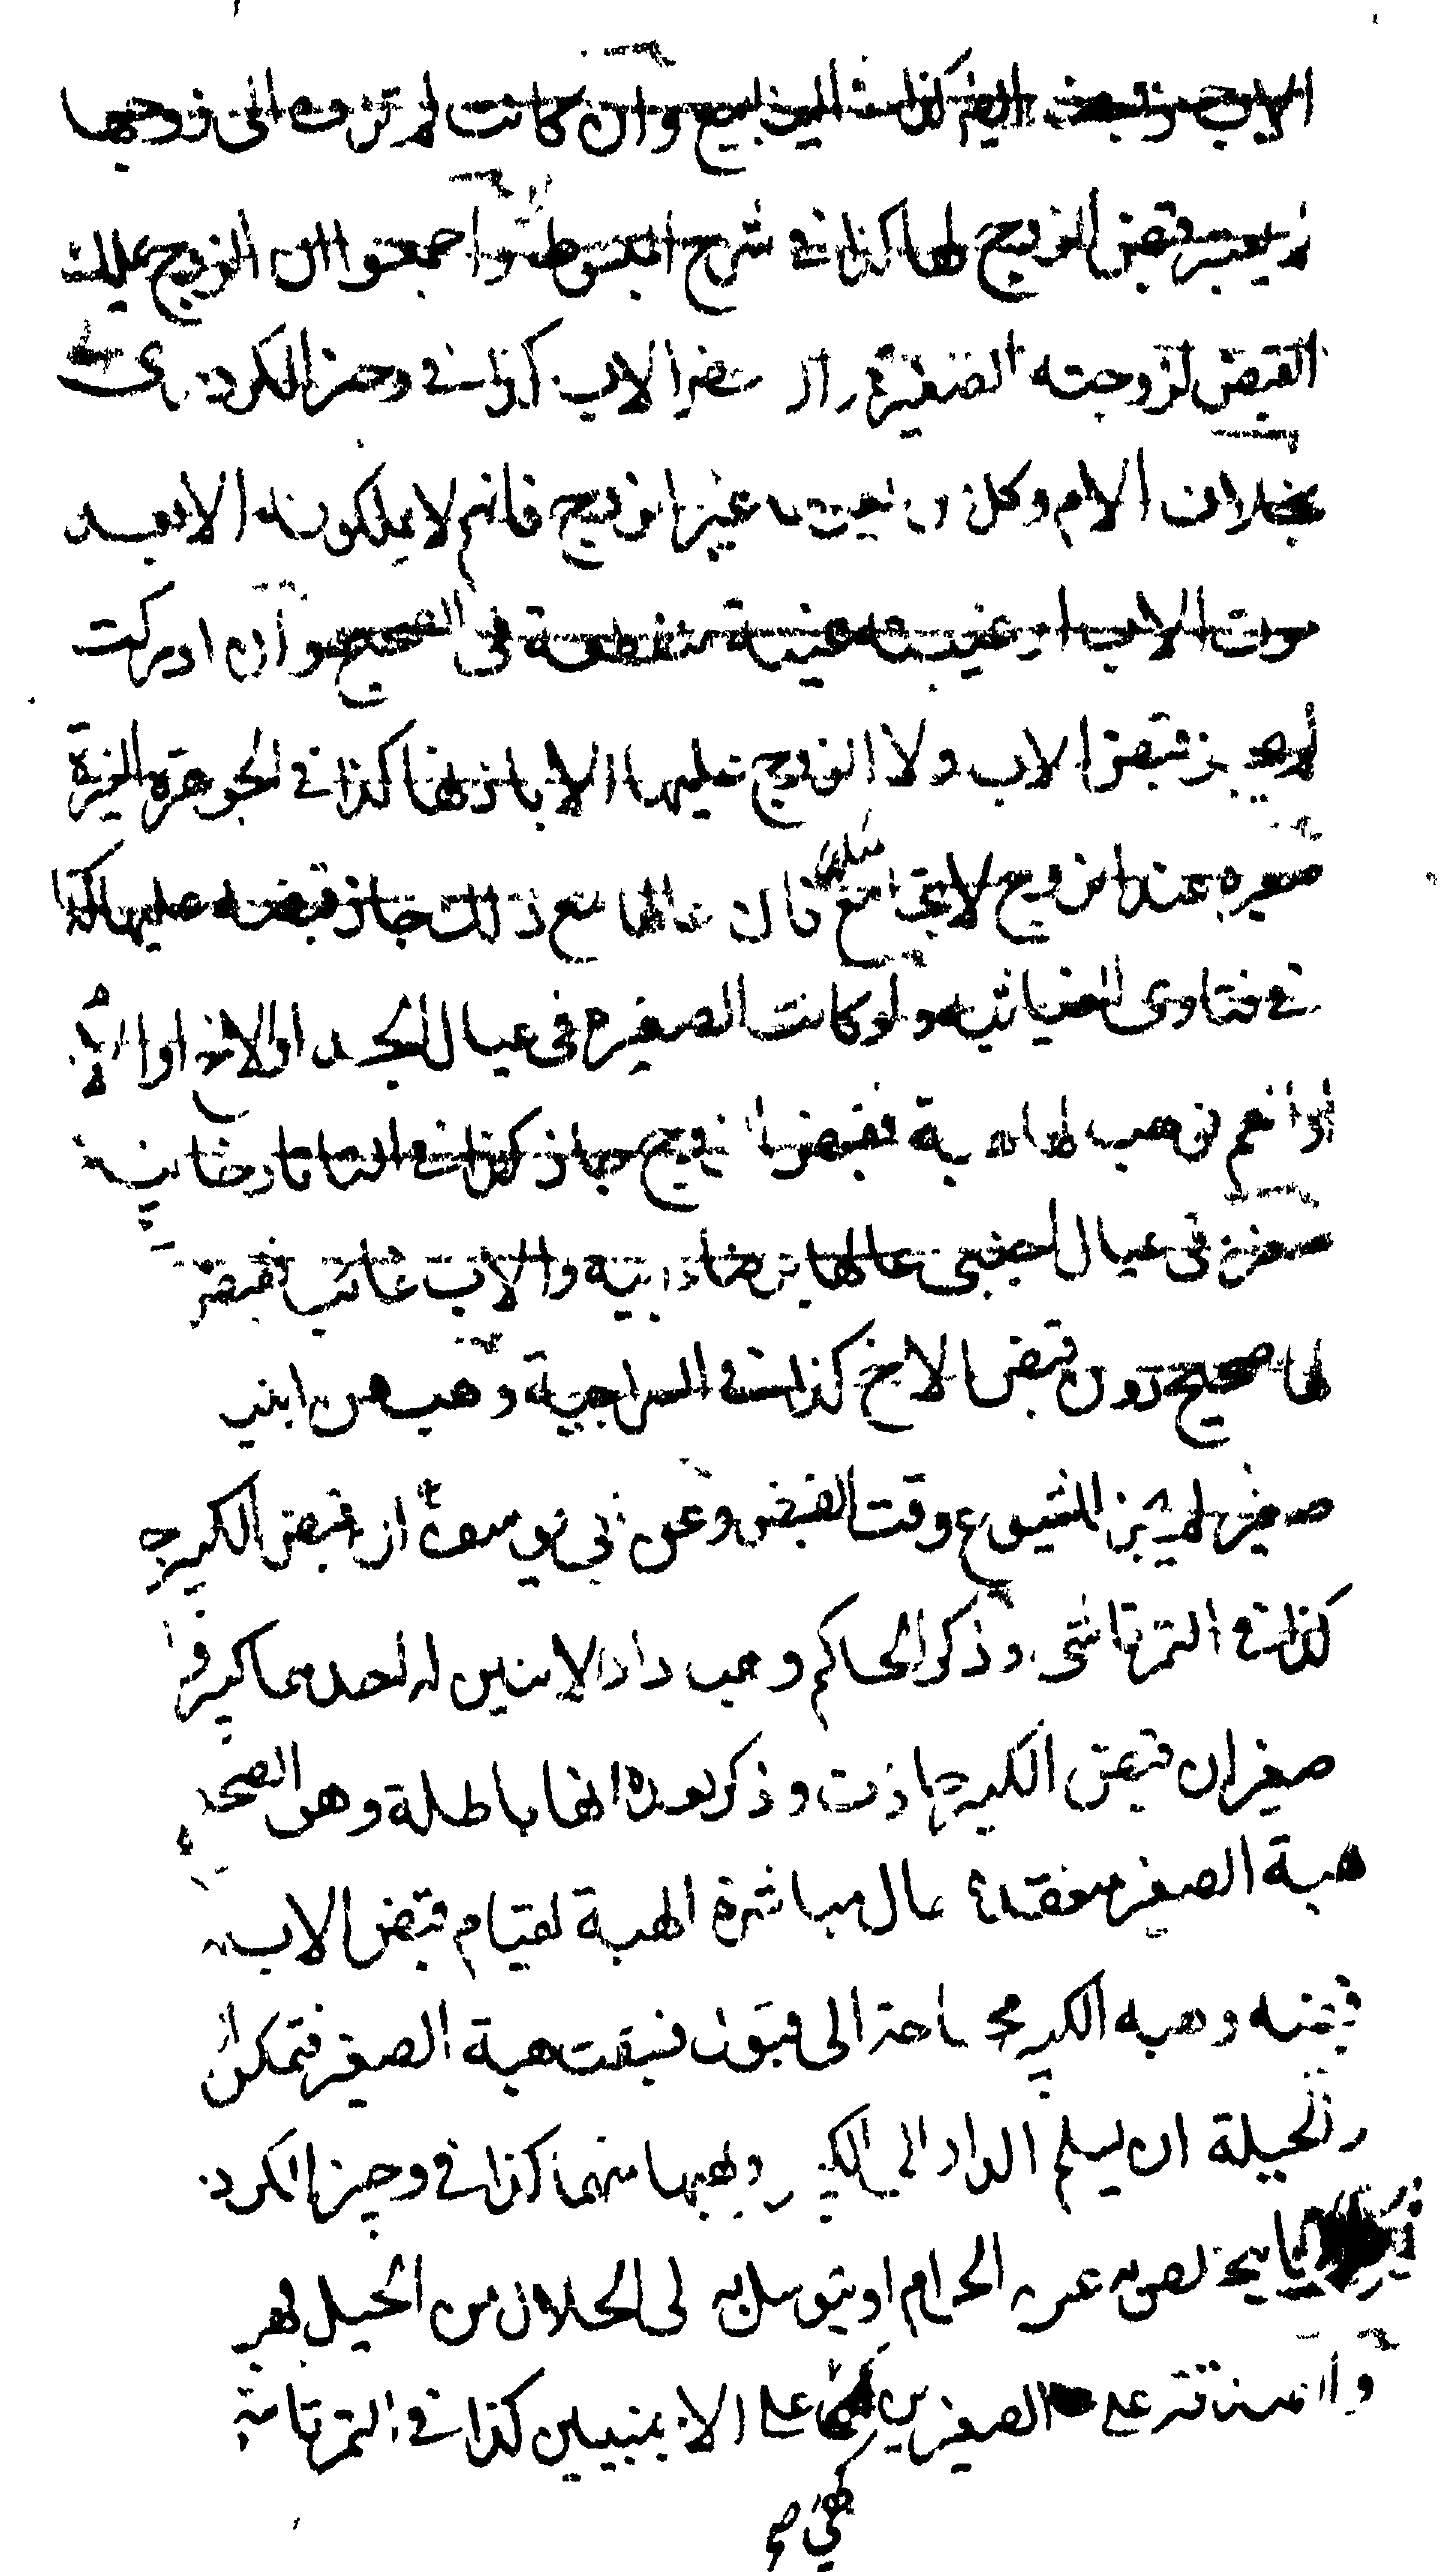 الاب وقبض اليتيم كذا في الينابيع وان كانت لم تزف الى زوجها
لم يعتبر قبض الزوج لها كذا في شرح المبسوط واجمعوا ان الزوج يملك
القبض لزوجته الصغيرة الاب كذا في وجيز الكردري
بخلاف الام وكل غير الزوج فانهم لا يملكونه الا بعد
موت الاب او غيبته غيبة منقطعة في الصحيح وان ادركت
لم يجز قبض الاب ولا الزوج عليها الا باذنها كذا في الجوهرة النيرة
صغيرة عند الزوج لا يجامع مثلها قال عالها مع ذلك جاز قبضه عليها كذا
في فتاوى الغياثية ولو كانت الصغيرة في عيال الجد او الاخ او الام
او العم فوهب لها هبة فقبض الزوج جاز كذا في التاتارخانية
صغيرة في عيال اجنبي عالها برضاء ابيه والاب غائب فقبض
لها صحيح دون قبض الاخ كذا في السراجية وهب من ابنيه
صغير لم يجز للشيوع وقت القبض وعن ابي يوسف ان قبض الكبير
كذا في التمرتاشي وذكر الحاكم وهب دارا لابنين له احدهما كبير و
صغير ان قبض الكبير جازت وذكر بعده انها باطلة وهو الصحيح
هبة الصغير منعقدة حال مباشرة الهبة لقيام قبض الاب
قبضه وهبة الكبير محتاجة الى قبول فسبقت هبة الصغير فتمكن
والحيلة ان يسلم الدار الى الكبير ويهبها منهما كذا في وجيز الكردري
يتخلص به عن الحرام او يتوسل به الى الحلال من الحيل فهو
على الصغيرين على الابنين كذا في التمرتاشي